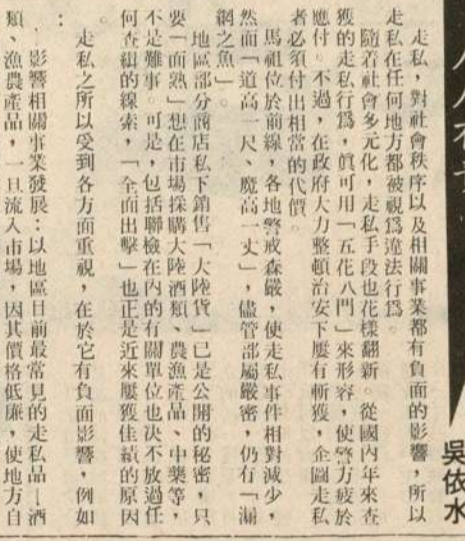 吳依水
走私，對社會秩序以及相關事業都有負面的影響，所以
走私在任何地方都被視為違法行為。
隨着社會多元化，走私手段也花樣翻新。從國內年來查
獲的走私行為，眞可用「五花八門」來形容，使警方疲於
應付。不過，在政府大力整頓治安下屢有斬獲，企圖走私
者必須付出相當的代價。
馬祖位於前線，各地警戒森嚴，使走私事件相對減少，
然而「道高一尺、魔高一丈」，儘管部屬嚴密，仍有「漏
網之魚」。
地區部分商店私下銷售「大陸貨」已是公開的秘密，只
要「面熟」想在市場採購大陸酒類、農漁產品、中藥等，
不是難事。可是，包括聯檢在內的有關單位也決不放過任
何查緝的線索，「全面出擊」也正是近來屢獲佳績的原因
。
走私之所以受到各方面重視，在於它有負面影響，例如
：
影響相關事業發展：以地區目前最常見的走私品—酒
類、漁農產品，一旦流入市場，因其價格低廉，使地方自